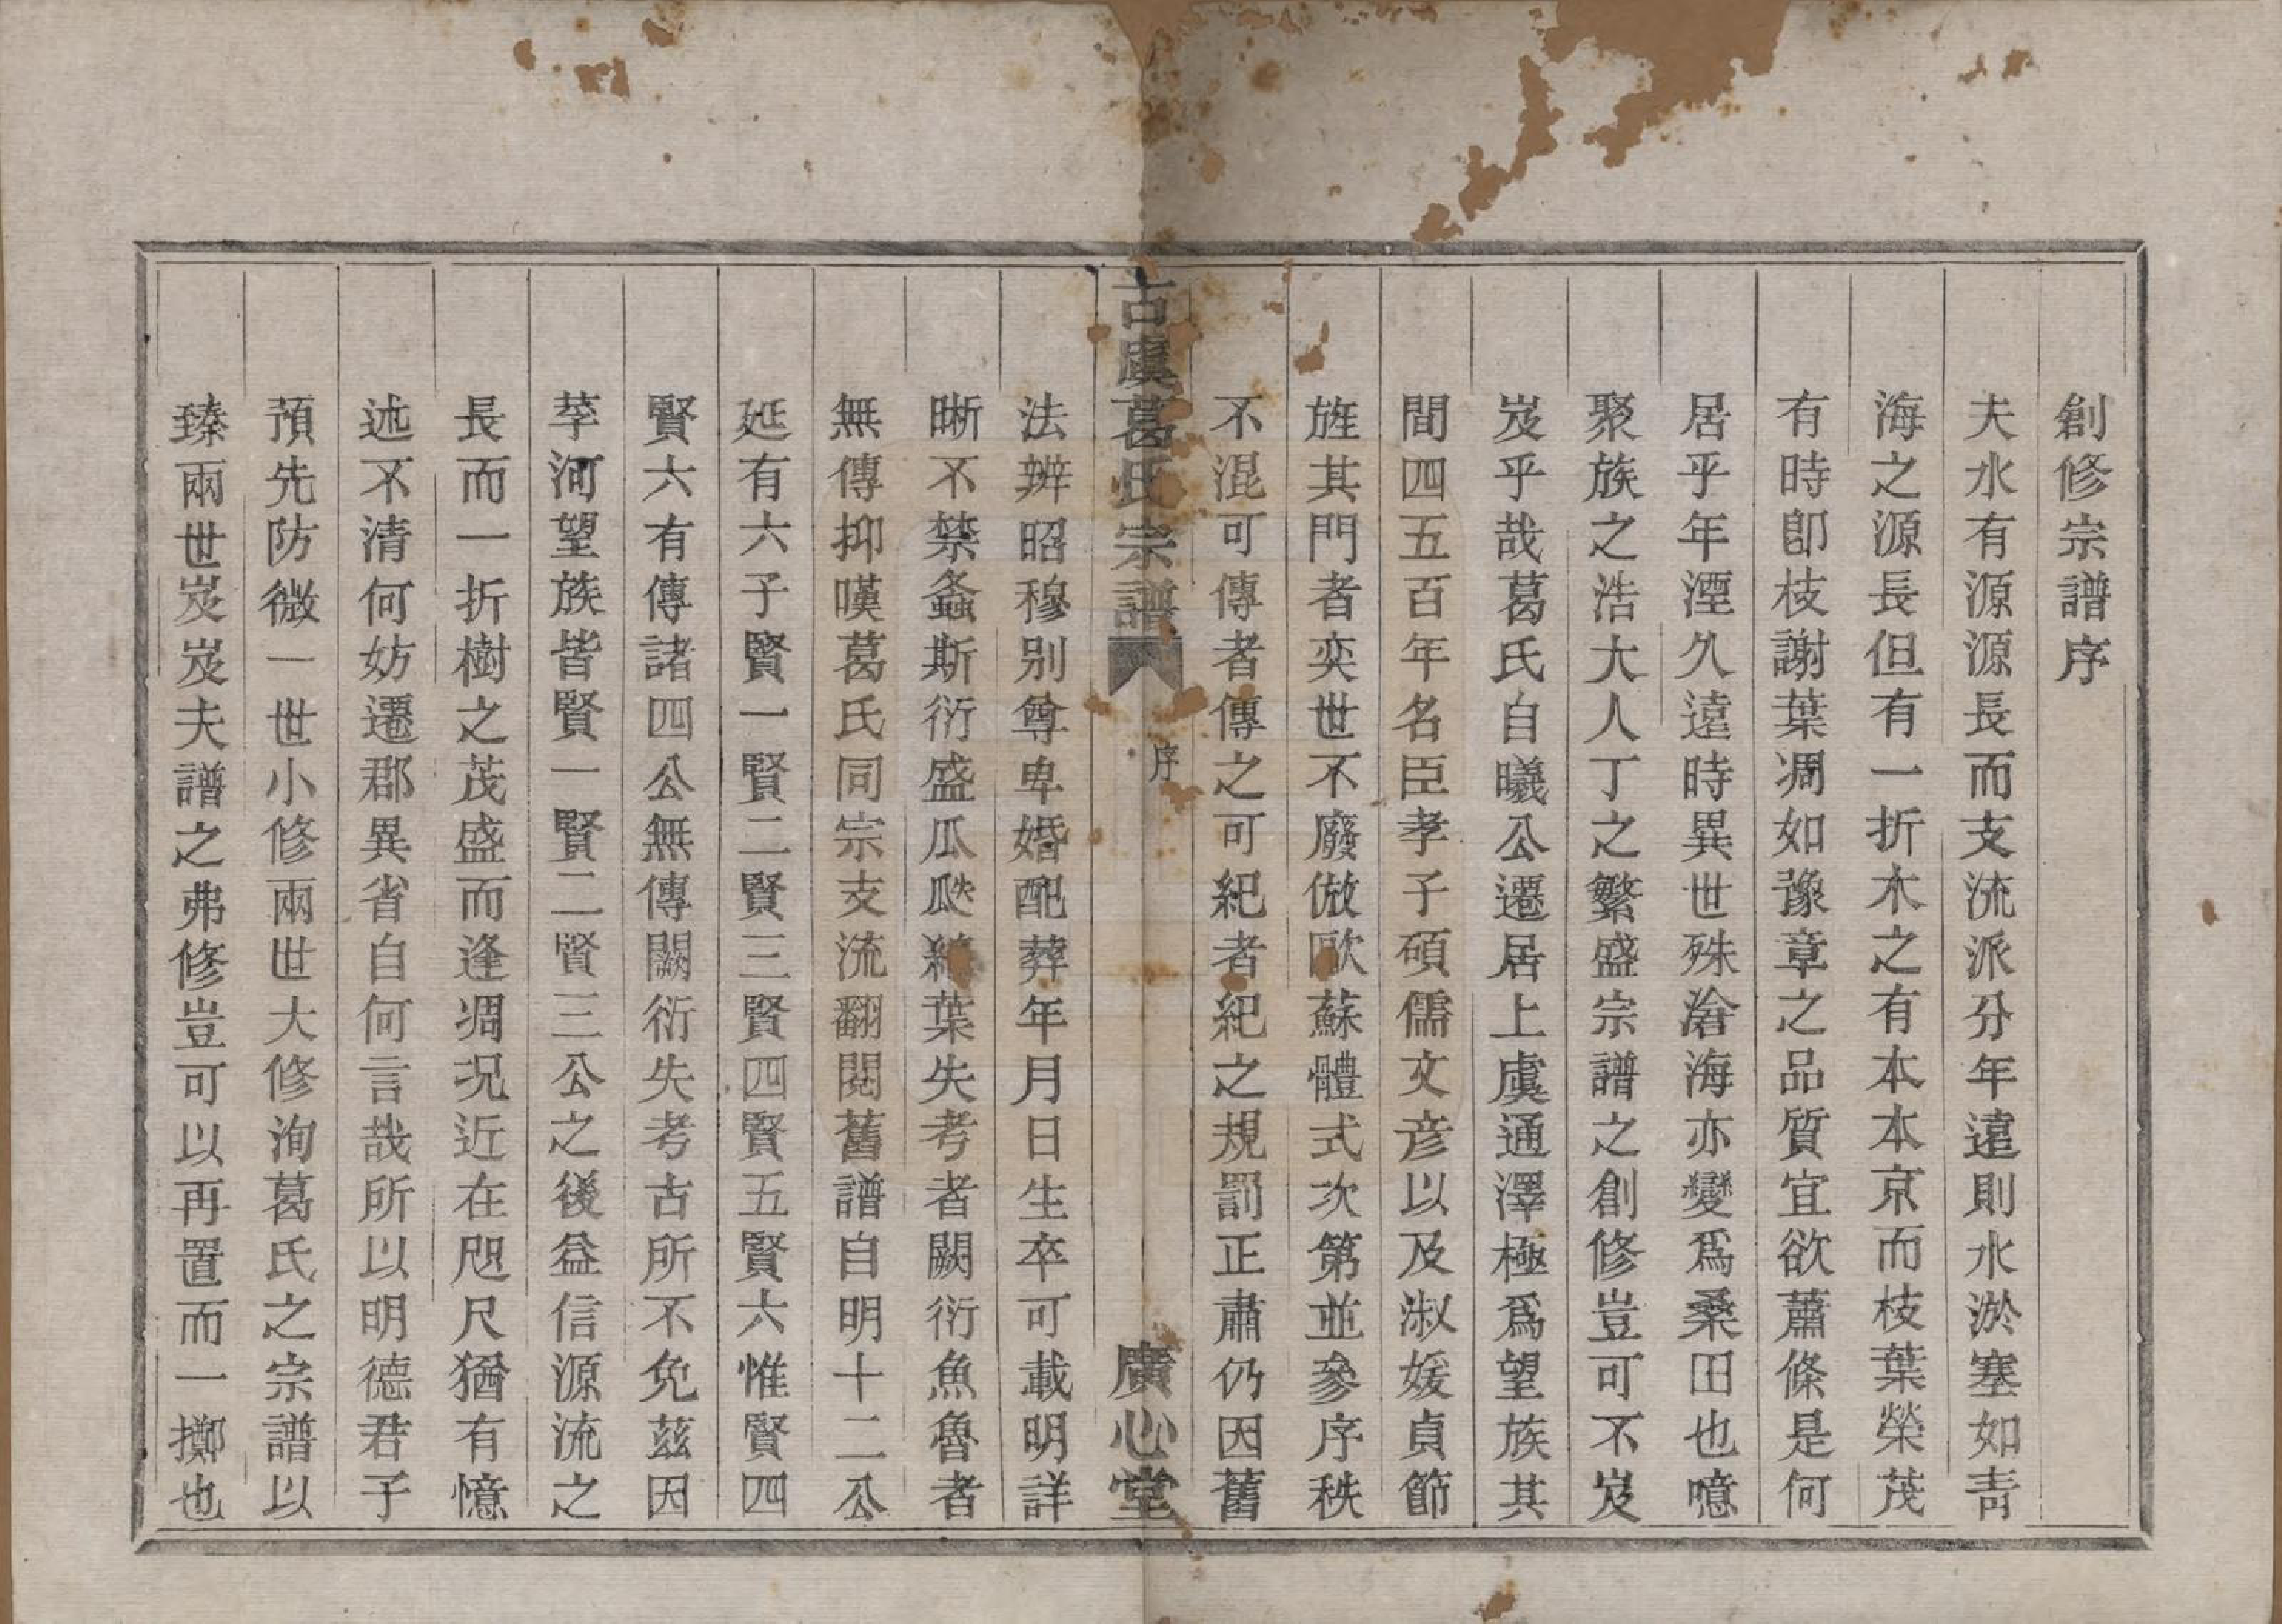 創修宗譜序
夫水有源源長而支流派分年遠則水淤塞如靑
海之源長但有一折木之有本本京而枝葉榮茂
有時卽枝謝葉凋如豫章之品質宜欲蕭條是何
居乎年湮久遠時異世殊滄海亦變爲桑田也噫
聚族之浩大人丁之繁盛宗譜之創修豈可不岌
岌乎哉葛氏自曦公遷居上虞通澤極爲望族其
間四五百年名臣孝子碩儒文彦以及淑媛貞節
旌其門者奕世不廢倣歐蘇體式次第並參序秩
不混可傳者傳之可紀者紀之規罰正肅仍因舊
古虞葛氏宗譜 序 廣心堂
法辨昭穆别尊卑婚配葬年月日生卒可載明詳
晰不禁螽斯衍盛瓜瓞綿葉失考者闕衍魚魯者
無傳抑嘆葛氏同宗支流翻閱舊譜自明十二公
延有六子賢一賢二賢三賢四賢五賢六惟賢四
賢六有傳諸四公無傳闕衍失考古所不免茲因
莘河望族皆賢一賢二賢三公之後益信源流之
長而一折樹之茂盛而逢凋況近在咫尺猶有憶
述不清何妨遷郡異省自何言哉所以明德君子
預先防微一世小修兩世大修洵葛氏之宗譜以
臻兩世岌岌夫譜之弗修豈可以再置而一擲也